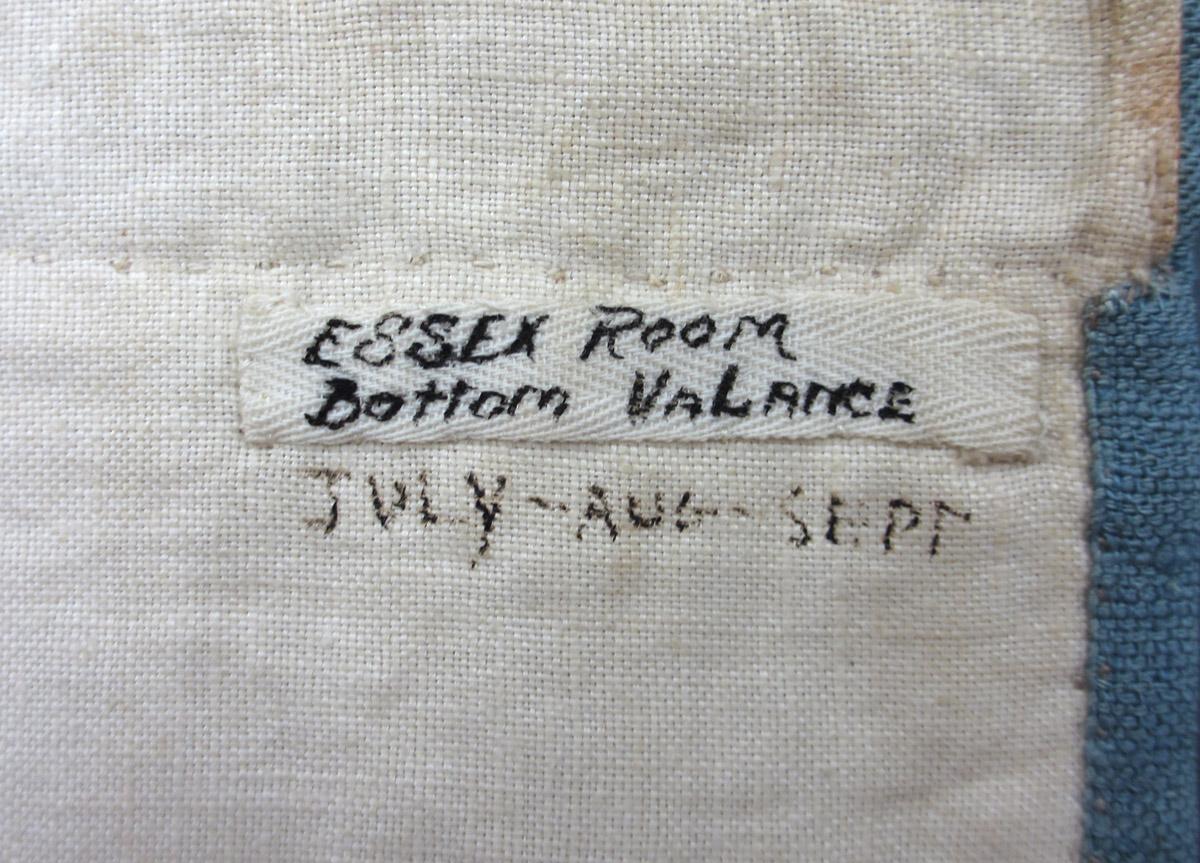 ESSEX ROOM
BOTTOM VALANCE
JULY-AUG-SEPT